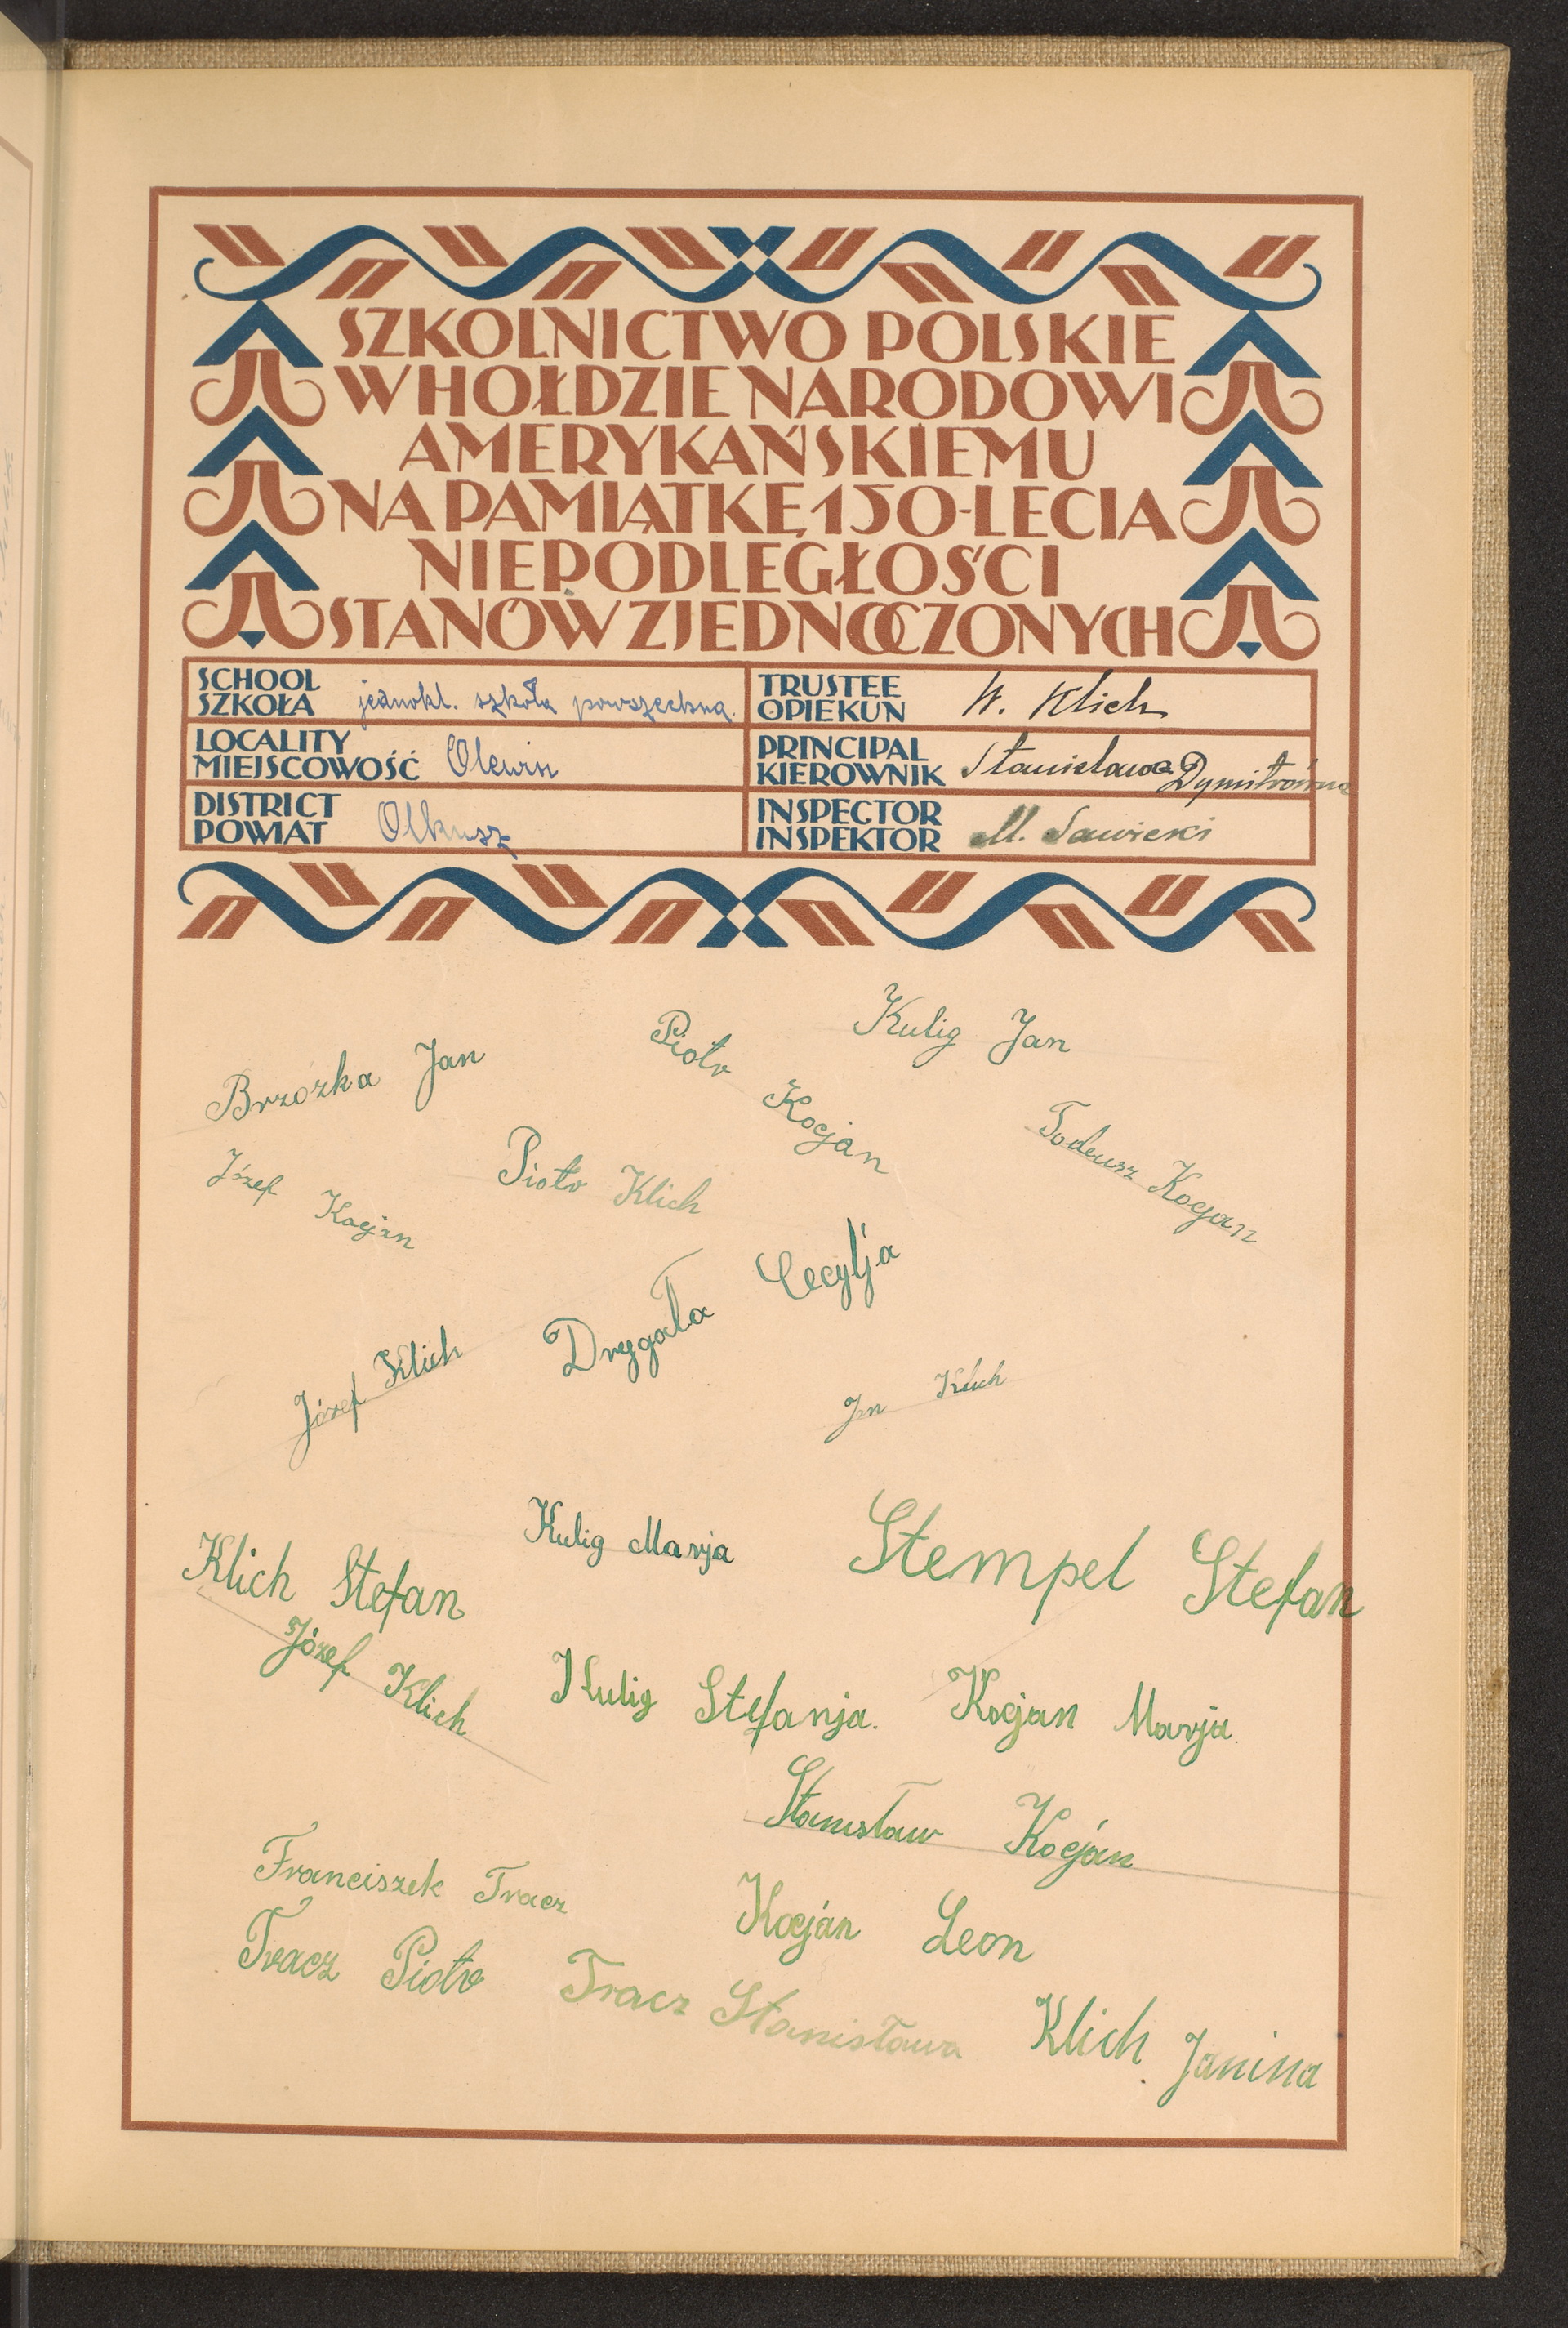 SZKOLNICTWO POLSKIE
W HOŁDZIE NARODOWI
AMERYKAŃSKIEMU
NA PAMIĄTKĘ 150-LECIA
NIEPODLEGŁOŚCI
STANÓW ZJEDNOCZONYCH
SCHOOL
SZKOŁA jednokl. szkoła powszechna.
TRUSTEE
OPIEKUN W. Klich
LOCALITY
MIEJSCOWOŚĆ Olewin
PRINCIPAL
KIEROWNIK Stanisława Dymitrówna
DISTRICT
POWIAT Olkusz
INSPECTOR
INSPEKTOR M. Sawicki
Kulig Jan
Brzózka Jan
Piotr Kocjan
Tadeusz Kocjan
Józef Kocjan
Piotr Klich
Drygała Cecylja
Józef Klich
Jan Klich
Kulig Marja
Stempel Stefan
Klich Stefan
Józef Klich
Kulig Stefanja.
Kocjan Marja.
Stanisław Kocján
Franciszek Tracz
Kocján Leon
Tracz Piotr
Tracz Stanisława
Klich Janina